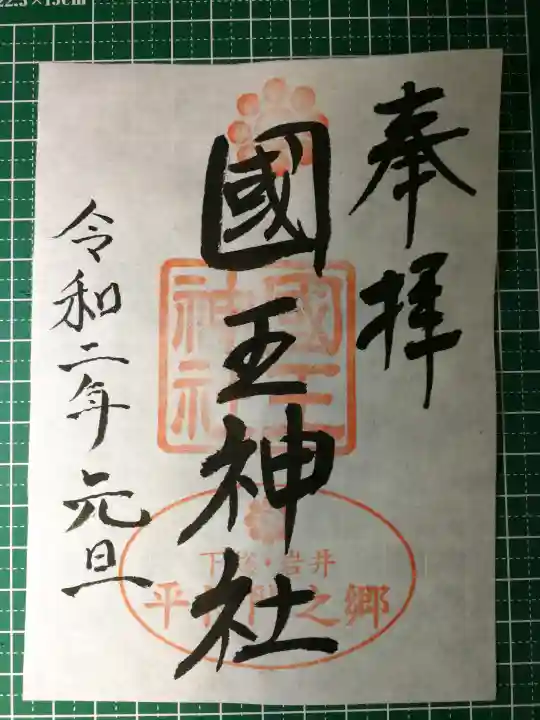 奉拝
國王神社
令和二年元旦
國王
神社
下総・岩井
平將門之郷
22.5×15cm